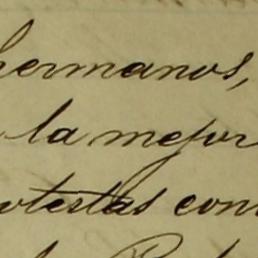 hermanos,
la mejor
protestas con